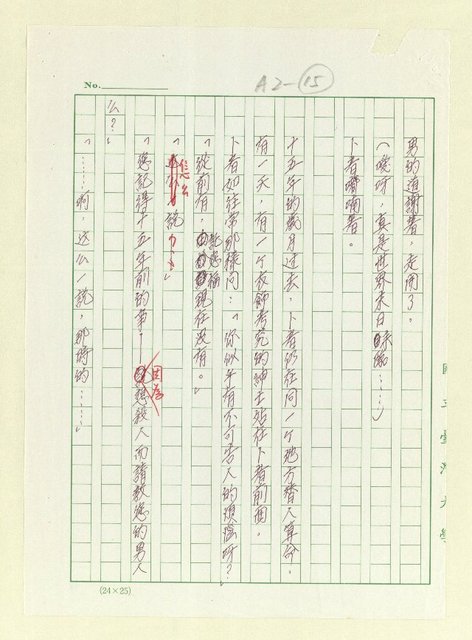 No.
A2-15
男的道謝着，走開了。
（噯呀，真是世界末日……）
卜者嘟喃着。
十五年的歲月过去，卜者仍在同一个地方替人算命。
有一天，有一个衣飾考究的紳士站在卜者前面。
卜者如往常那樣問：「你似乎有不可告人的煩惱呀？」
「從前有，託您福現在沒有。」
「怎么說？」
「您記得十五年前的事，──因為想殺人而請教您的男人
么？」
「……啊，这么一說，那時的……」
(24×25)